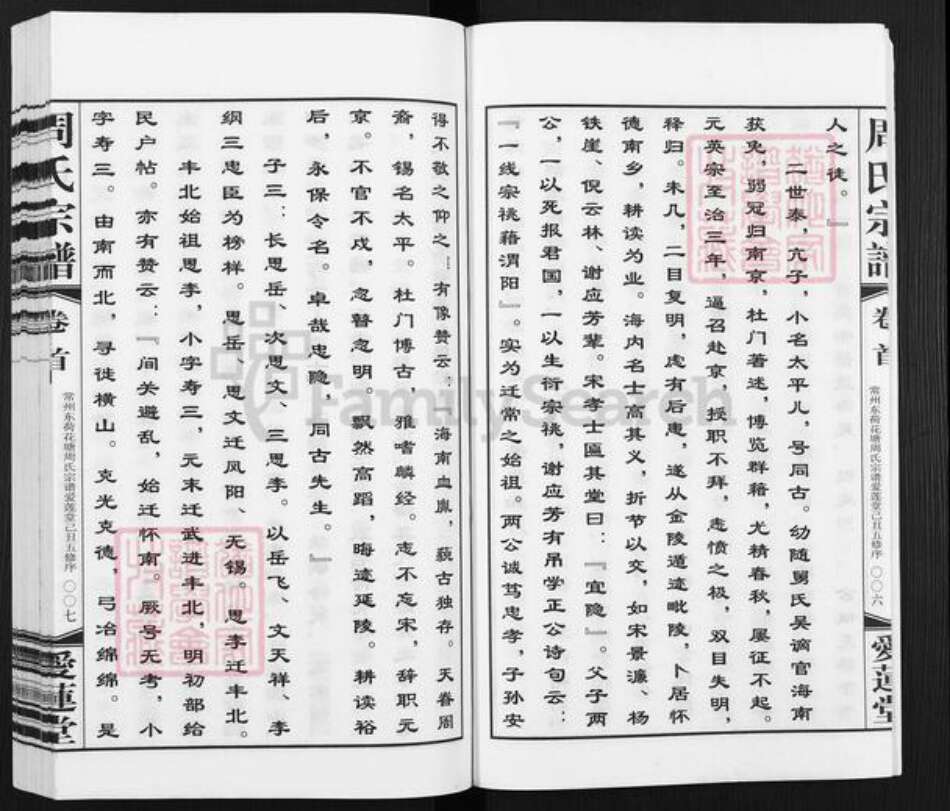 周氏宗譜
卷首
常州东荷花塘周氏宗谱爱莲堂己丑五修序
〇〇六
愛蓮堂
人之徒。』
二世泰，亢子，小名太平儿，号同古。幼随舅氏吴谪官海南
获免，弱冠归南京，杜门著述，博览群籍，尤精春秋，屡征不起。
元英宗至治三年，逼召赴京，授职不拜，恚愤之极，双目失明，
释归。未几，二目复明，虑有后患，遂从金陵遁迹毗陵，卜居怀
德南乡，耕读为业。海内名士高其义，折节以交，如宋景濂、杨
铁崖、倪云林、谢应芳辈。宋孝士匾其堂曰：『宜隐』。父子两
公，一以死报君国，一以生衍宗祧，谢应芳有吊学正公诗句云：
『一线宗祧藉渭阳』。实为迁常之始祖。两公诚笃忠孝，子孙安
得不敬之仰之…有像赞云：『海南血胤，藐古独存。天眷周
裔，锡名太平。杜门博古，雅嗜麟经。志不忘宋，辞职元
京。不官不戍，忽瞽忽明。飘然高蹈，晦迹延陵。耕读裕
后，永保令名。卓哉忠隐，同古先生。』
子三：长思岳、次思文、三思李。以岳飞、文天祥、李
纲三忠臣为榜样。思岳、思文迁凤阳、无锡。思李迁丰北。
丰北始祖思李，小字寿三，元末迁武进丰北，明初部给
民户帖。亦有赞云：『间关避乱，始迁怀南。厥号无考，小
字寿三。由南而北，寻徙横山。克光克德，弓冶绵绵。是
周氏宗譜
卷首
常州东荷花塘周氏宗谱爱莲堂己丑五修序
〇〇七
愛蓮堂
FamilySearch